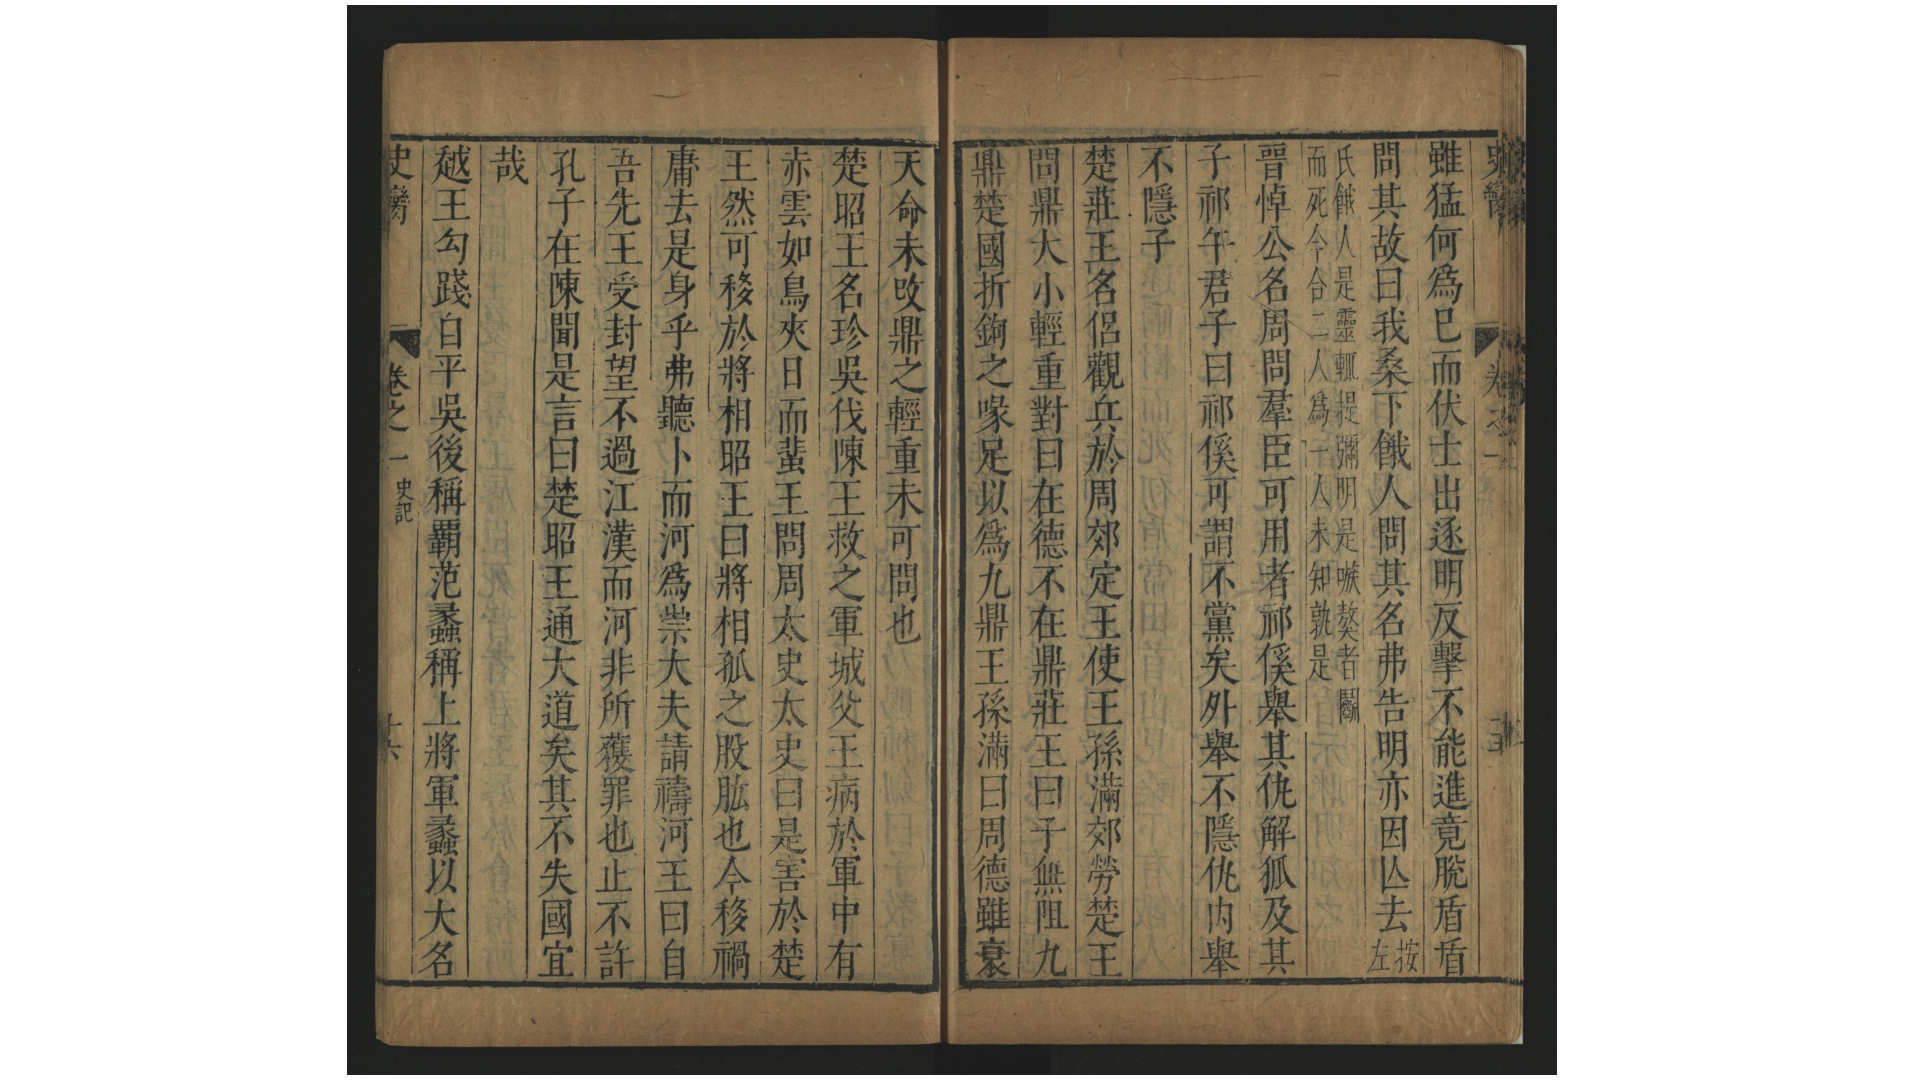 雖猛何爲已而伏士出逐明反擊不能進竟脫盾盾
問其故曰我桑下餓人問其名弗告明亦因亾去按左
氏餓人是靈輒提彌明是嗾獒者鬭
而死今合二人爲一人未知孰是
晉悼公名周問羣臣可用者祁傒舉其仇解狐及其
子祁午君子曰祁傒可謂不黨矣外舉不隱仇内舉
不隱子
楚莊王名侶觀兵於周郊定王使王孫滿郊勞楚王
問鼎大小輕重對曰在德不在鼎莊王曰子無阻九
鼎楚國折鉤之喙足以爲九鼎王孫滿曰周德雖衰
天命未改鼎之輕重未可問也
楚昭王名珍吳伐陳王救之軍城父王病於軍中有
赤雲如鳥夾日而蜚王問周太史太史曰是害於楚
王然可移於將相昭王曰將相孤之股肱也今移禍
庸去是身乎弗聽卜而河爲祟大夫請禱河王曰自
吾先王受封望不過江漢而河非所獲罪也止不許
孔子在陳聞是言曰楚昭王通大道矣其不失國宜
哉
越王勾踐白平吳後稱霸范蠡稱上將軍蠡以大名
卷之一 史記 十六